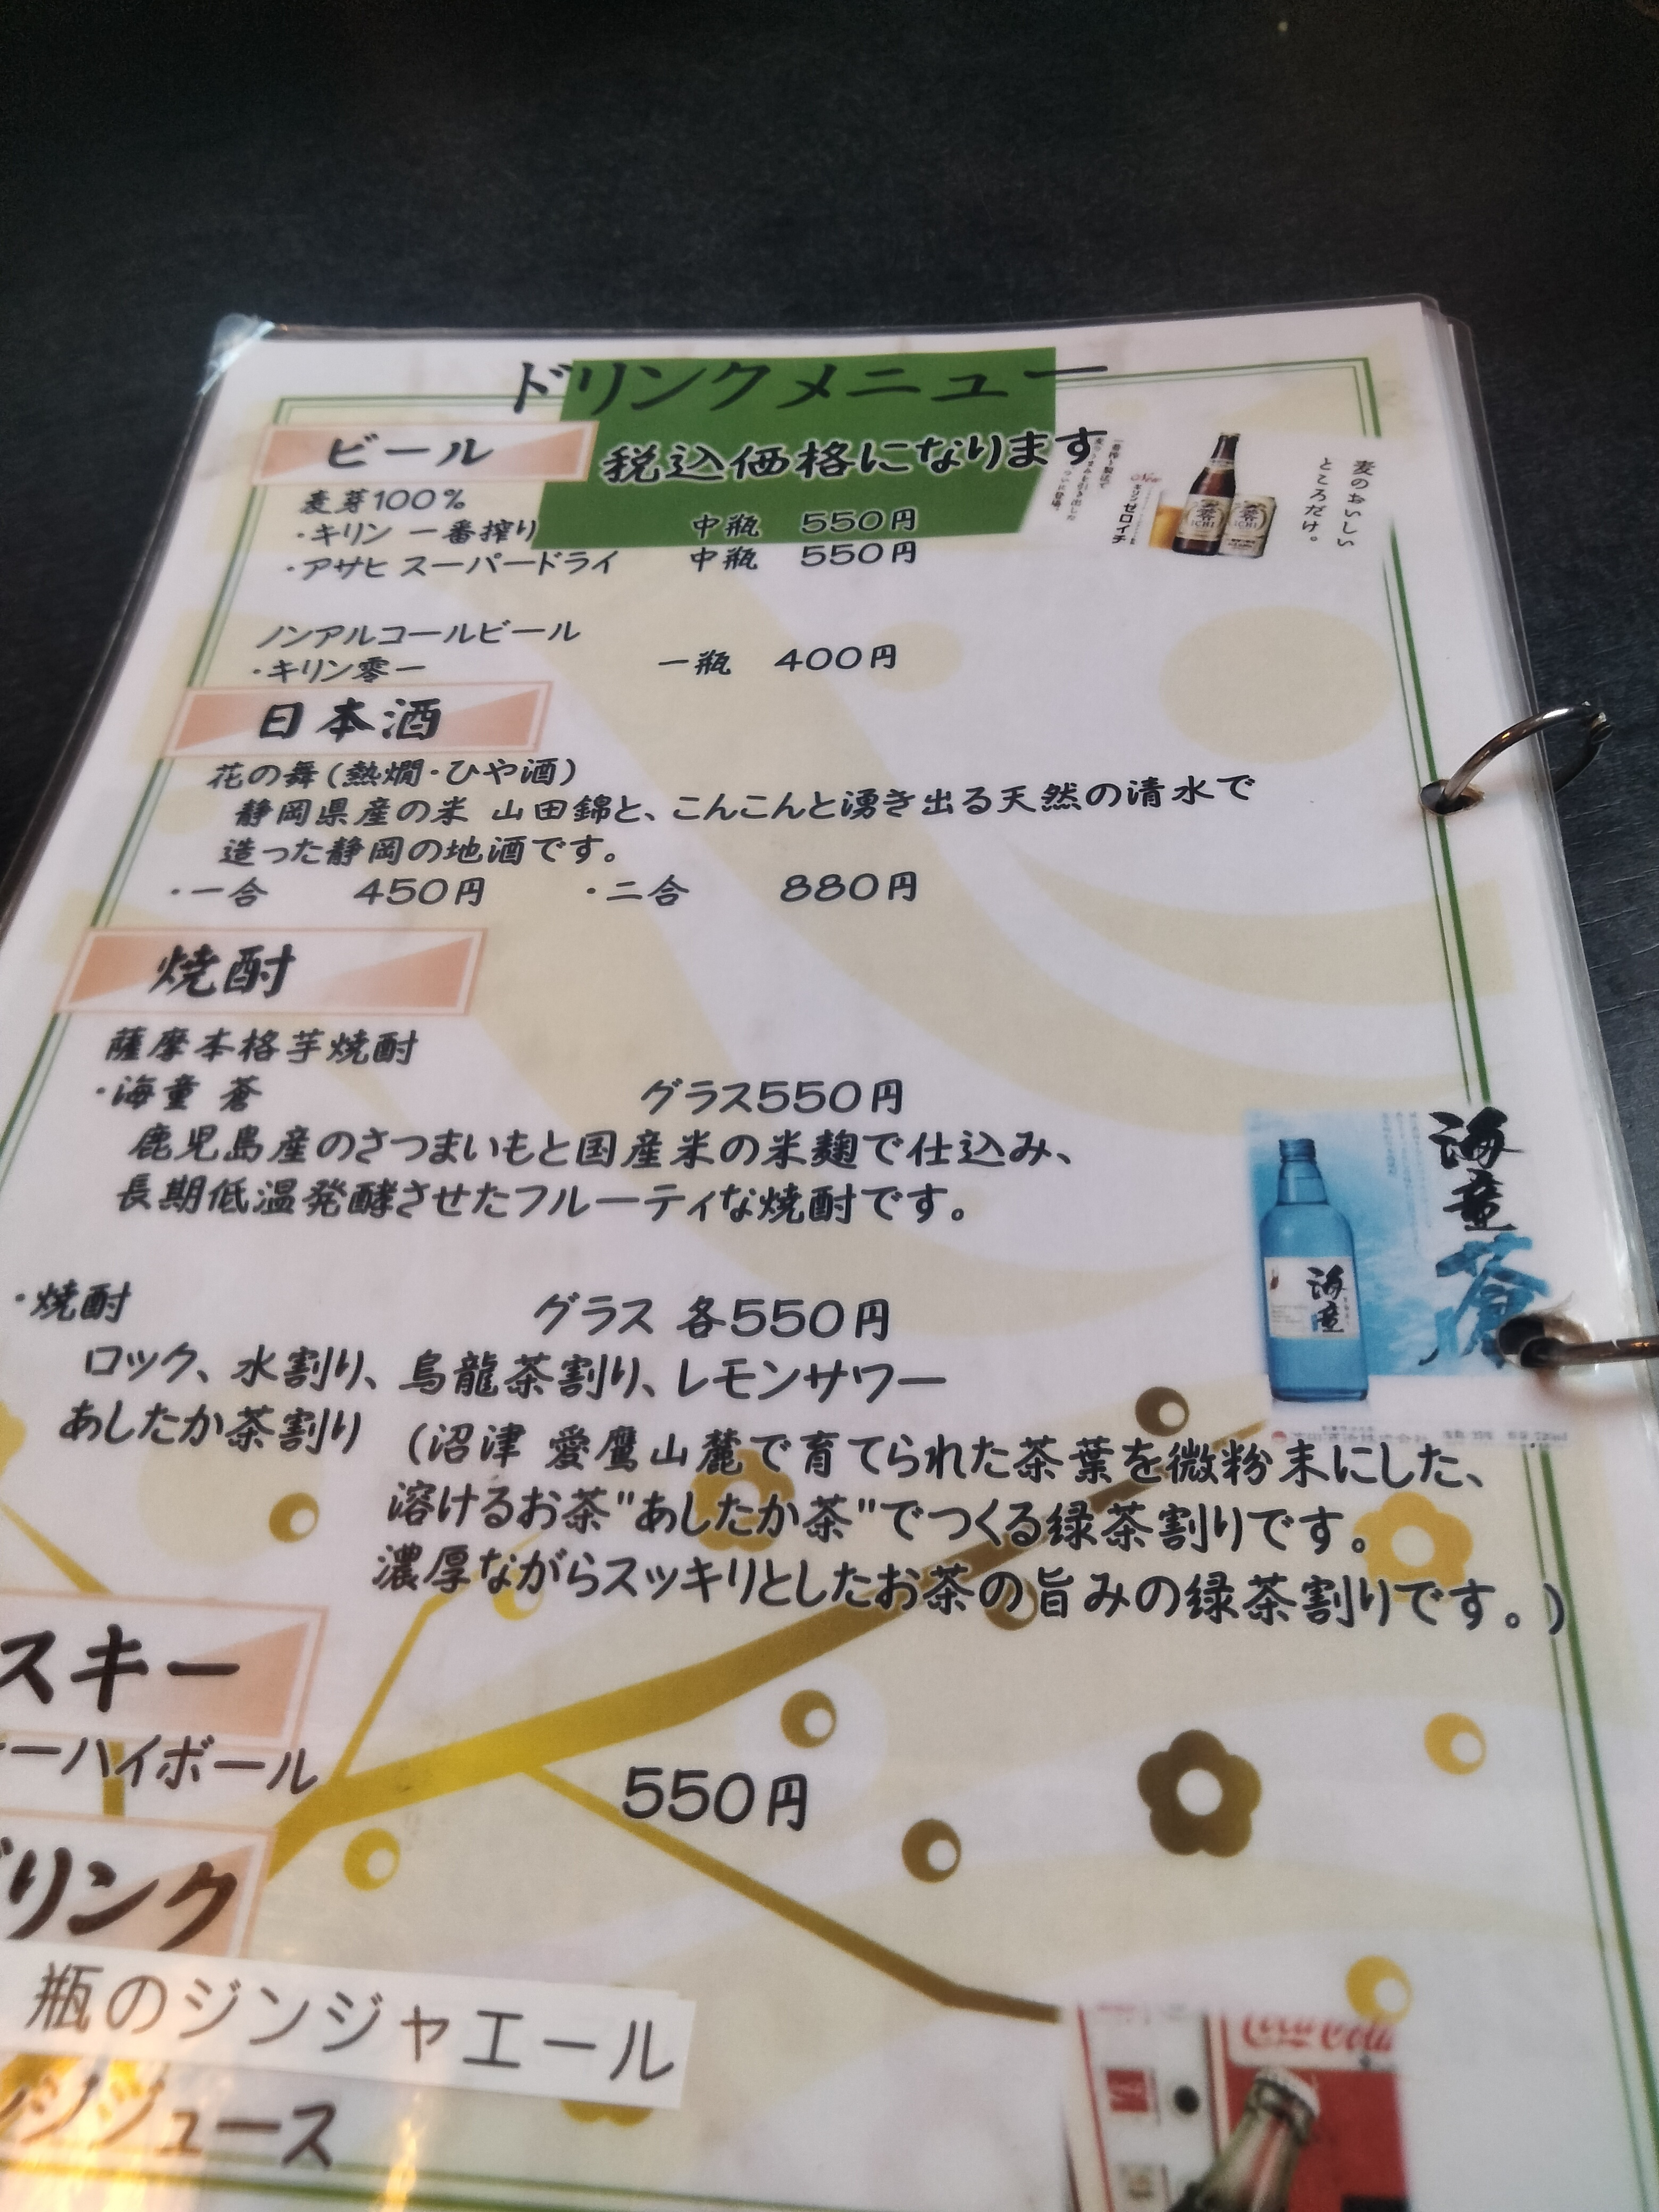 ドリンクメニュー
ビール
税込価格になります
麦芽100%
・キリン 一番搾り 中瓶 550円
・アサヒ スーパードライ 中瓶 550円
麦のおいしい
ところだけ。
キリンゼロイチ
零
ICHI
ノンアルコールビール
・キリン零一 一瓶 400円
日本酒
花の舞(熱燗・ひや酒)
静岡県産の米 山田錦と、こんこんと湧き出る天然の清水で
造った静岡の地酒です。
・一合 450円 ・二合 880円
焼酎
薩摩本格芋焼酎
・海童 蒼 グラス550円
鹿児島産のさつまいもと国産米の米麹で仕込み、
長期低温発酵させたフルーティな焼酎です。
海童
蒼
海童
・焼酎 グラス 各550円
ロック、水割り、烏龍茶割り、レモンサワー
あしたか茶割り (沼津 愛鷹山麓で育てられた茶葉を微粉末にした、
溶けるお茶"あしたか茶"でつくる緑茶割りです。
濃厚ながらスッキリとしたお茶の旨みの緑茶割りです。)
スキー
ーハイボール 550円
ドリンク
瓶のジンジャエール
ジジュース
Coca-Cola